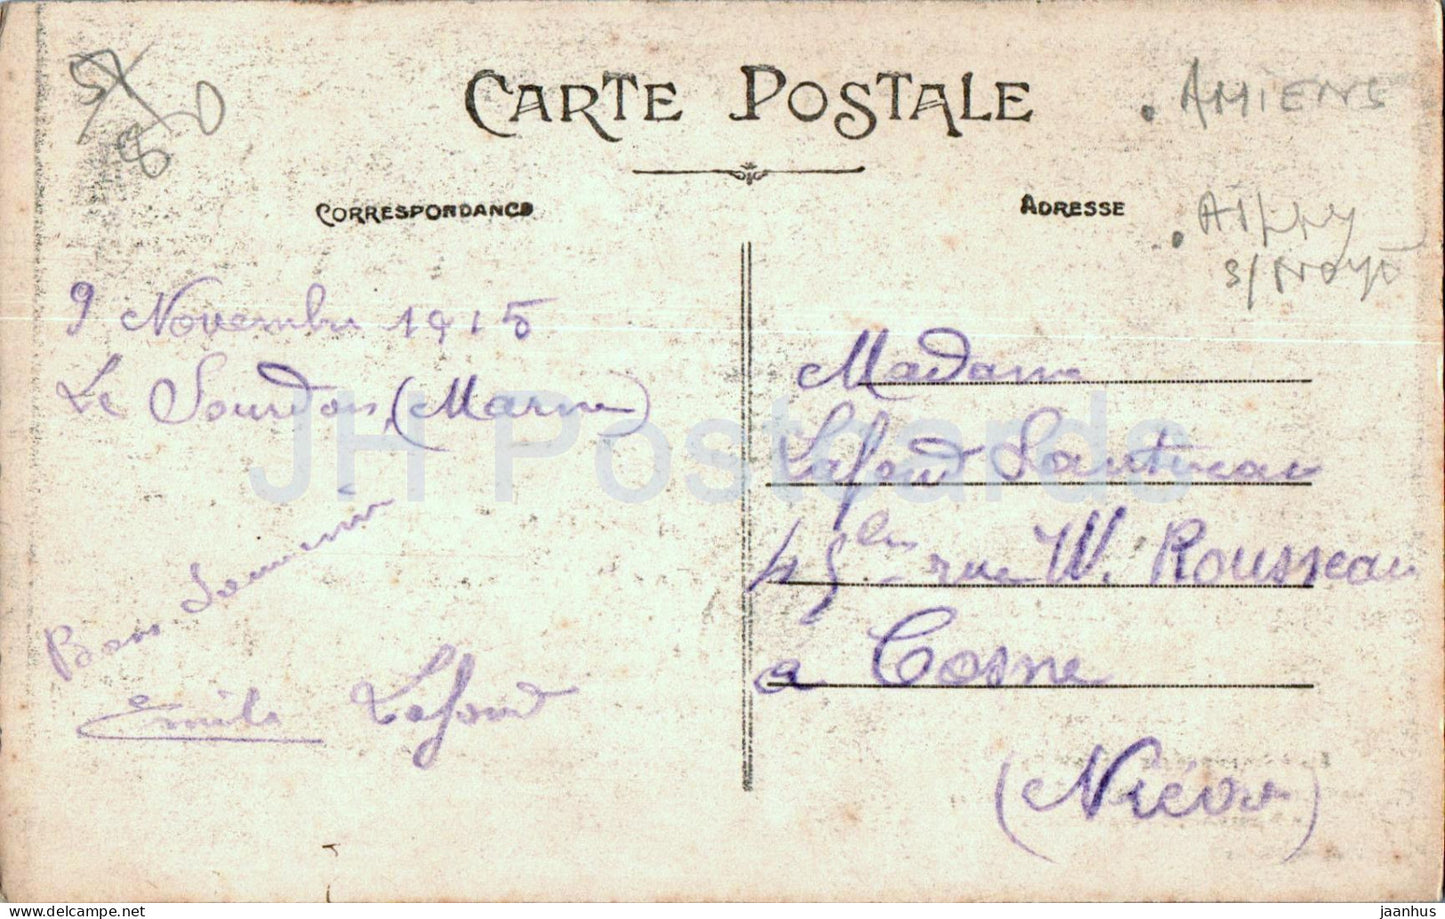 CARTE POSTALE
CORRESPONDANCE
ADRESSE
80
AMIENS
AILLY
s/ NOYE
9 Novembre 1915
Le Sourdon (Marne)
Bons Souvenirs
Emile Lafond
Madame
Lafond Sautereau
45 bis rue W. Rousseau
a Cosne
(Nièvre)
JH Postcards
delcampe.net
jaanhus